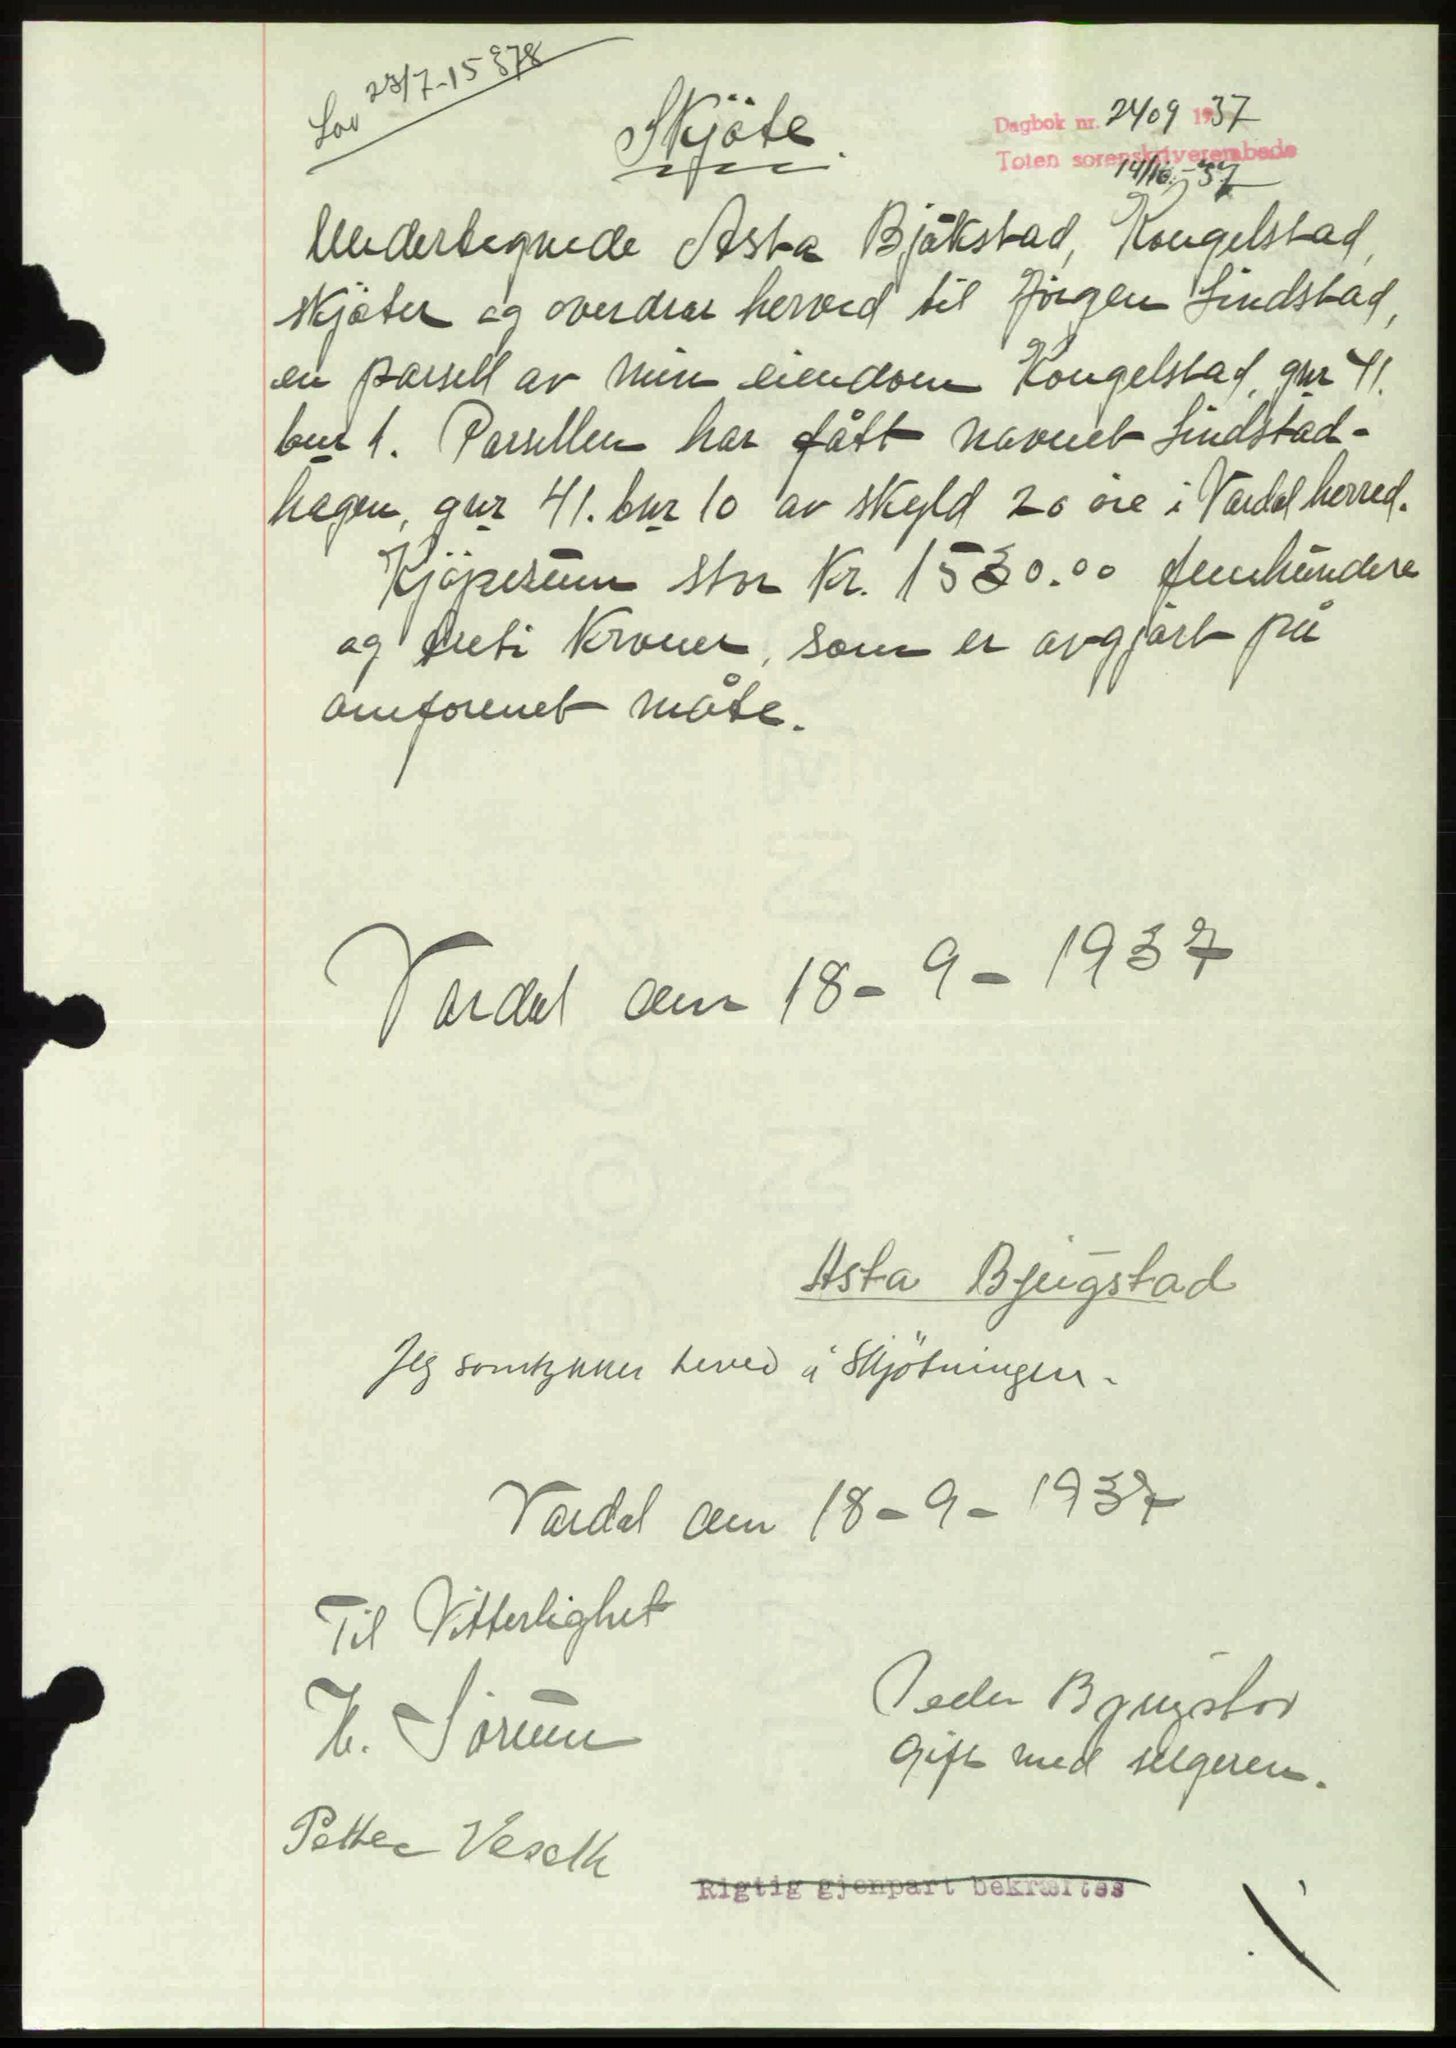 Lov 23/7-15 §78
Skjöte.
Dagbok nr. 2409 1937
Toten sorenskriverembede
14/10.-37
Undertegnede Asta Bjökstad, Kongelstad,
skjöter og overdrar herved til Jörgen Lindstad,
en parsell av min eiendom Kongelstad, gnr 41.
bnr 1. Parsellen har fått navnet Lindstad-
hagen, gnr 41. bnr 10 av skyld 20 öre i Vardal herred.
Kjöpesum stor Kr. 1530.00 femhundre
og treti kroner, som er avgjort på
omforenet måte.
Vardal den 18-9-1937
Asta Bjugstad
Jeg samtykker herved i Skjötningen.
Vardal den 18-9-1937
Til Vitterlighet
H. Sörum
Peder Bjugstad
Gift med selgeren.
Petter Veseth
Rigtig gjenpart bekræftes